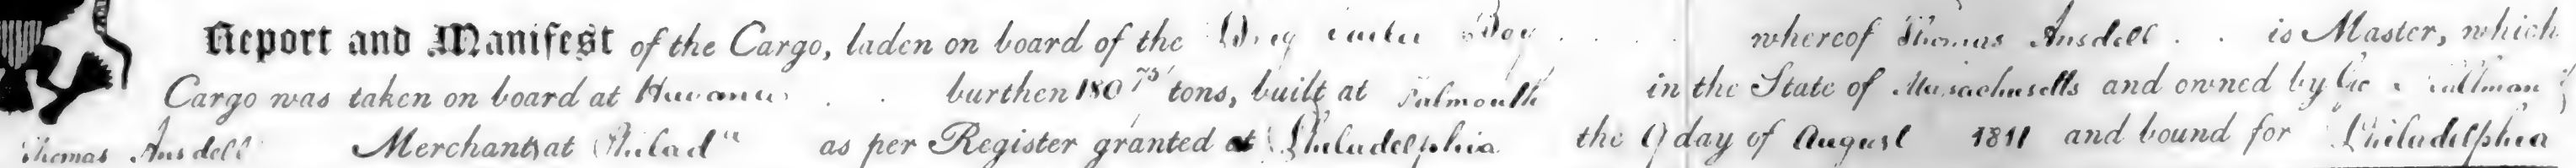 Report and Manifest of the Cargo, laden on board of the Brig whereof Thomas Ansdell is Master, which
Cargo was taken on board at Havana burthen 180 75 tons, built at Falmouth in the State of Massachusetts and owned by Geo Tallman &
Thomas Ansdell Merchants at Philada as per Register granted at Philadelphia the 9 day of August 1811 and bound for Philadelphia